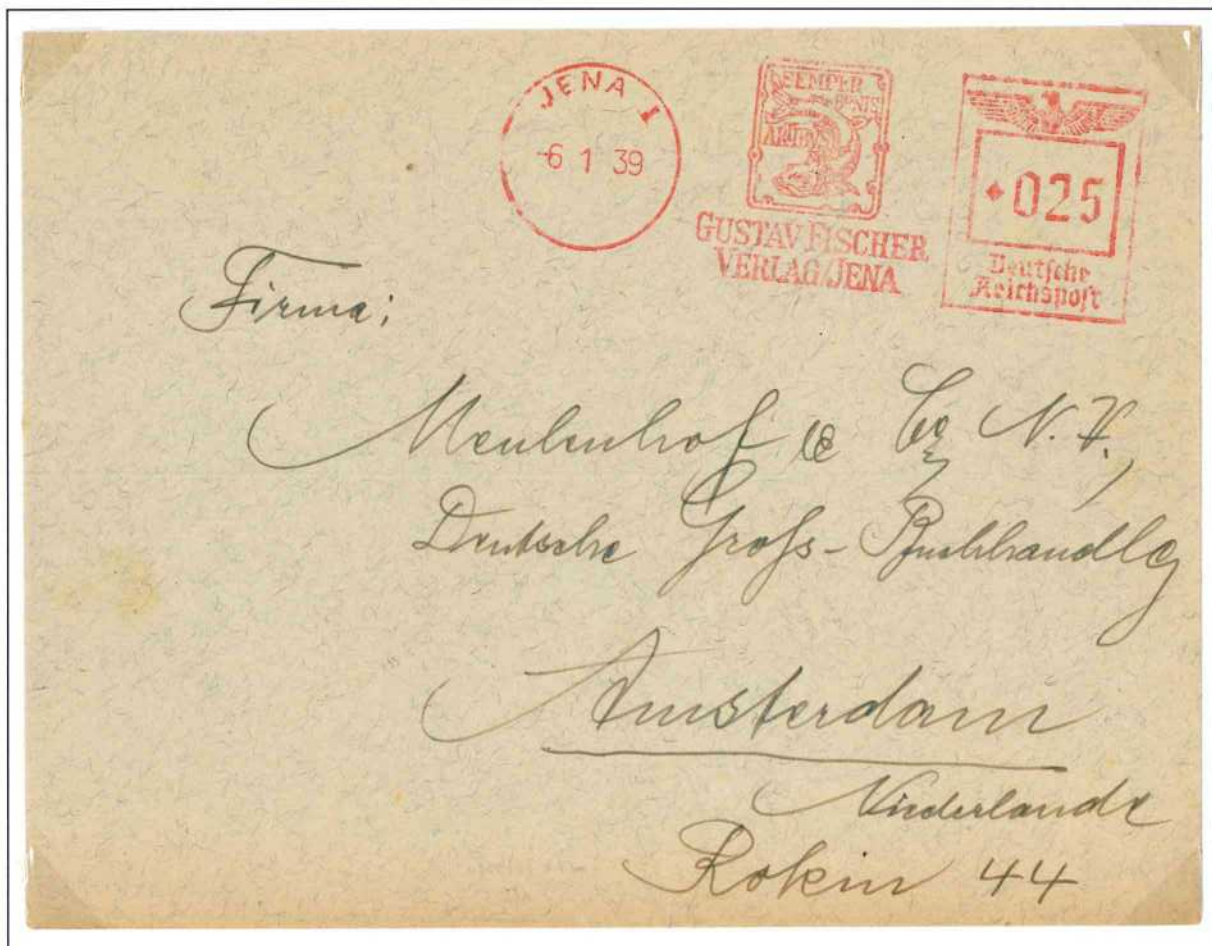 JENA 1
-6 1 39
SEMPER
BONIS
ARTIBUS
GUSTAV FISCHER
VERLAG/JENA
025
Deutsche
Reichspost
Firma:
Meulenhof & Co N.V.,
Deutsche Groß-Buchhandlg
Amsterdam
Niederlande
Rokin 44